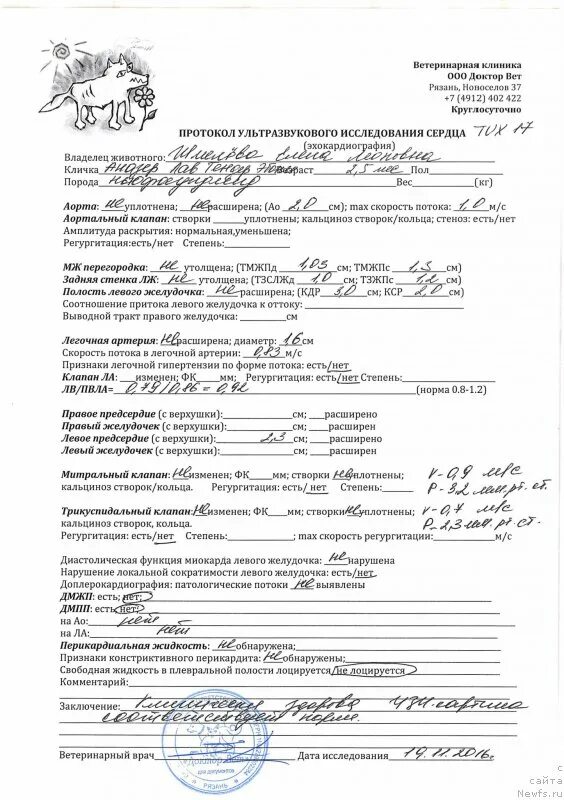 Ветеринарная клиника
ООО Доктор Вет
Рязань, Новоселов 37
+7 (4912) 402 422
Круглосуточно
ПРОТОКОЛ УЛЬТРАЗВУКОВОГО ИССЛЕДОВАНИЯ СЕРДЦА TUX 17
(эхокардиография)
Владелец животного: Шмелёва Елена Леоновна
Кличка Андер Лав Тендер Возраст 2,5 мес Пол
Порода Ньюфаундленд Вес (кг)
Аорта: не уплотнена; не расширена; (Ао 2,0 см); max скорость потока: 1,0 м/с
Аортальный клапан: створки уплотнены; кальциноз створок/кольца; стеноз: есть/нет
Амплитуда раскрытия: нормальная,уменьшена;
Регургитация:есть/нет Степень:
МЖ перегородка: не утолщена; (ТМЖПд 1,03 см; ТМЖПс 1,3 см)
Задняя стенка ЛЖ: не утолщена; (ТЗСЛЖд 1,0 см; ТЗЖПс 1,2 см)
Полость левого желудочка: не расширена; (КДР 3,0 см; КСР 2,0 см)
Соотношение притока левого желудочка к оттоку:
Выводной тракт правого желудочка: см
Легочная артерия: не расширена; диаметр: 1,6 см
Скорость потока в легочной артерии: 0,83 м/с
Признаки легочной гипертензии по форме потока: есть/нет
Клапан ЛА: изменен; ФК мм; Регургитация: есть/нет Степень:
ЛВ/ПВЛА= 0,79/0,86 = 0,92 (норма 0.8-1.2)
Правое предсердие (с верхушки): см; расширено
Правый желудочек (с верхушки): см; расширен
Левое предсердие (с верхушки): 2,3 см; расширено
Левый желудочек (с верхушки): см; расширен
Митральный клапан: не изменен; ФК мм; створки не уплотнены; v-0,9 м/с
кальциноз створок/кольца. Регургитация: есть/ нет Степень: P-3,2 мм.рт.ст.
Трикуспидальный клапан: не изменен; ФК мм; створки не уплотнены; v-0,7 м/с
кальциноз створок, кольца. P-2,3 мм.рт.ст.
Регургитация: есть/нет Степень: ; max скорость регургитации: м/с
Диастолическая функция миокарда левого желудочка: не нарушена
Нарушение локальной сократимости левого желудочка: есть/нет
Доплерокардиография: патологические потоки не выявлены
ДМЖП: есть; нет;
ДМПП: есть; нет;
на Ао: нет
на ЛА: нет
Перикардиальная жидкость: не обнаружена;
Признаки констриктивного перикардита: не обнаружены;
Свободная жидкость в плевральной полости лоцируется/не лоцируется
Комментарий:
Заключение: Клинически здорова УЗИ-картина
соответствует норме.
Ветеринарный врач Дата исследования 19.11.2016г.
Доктор Вет
для документов
РЯЗАНЬ
с
сайта
Newfs.ru